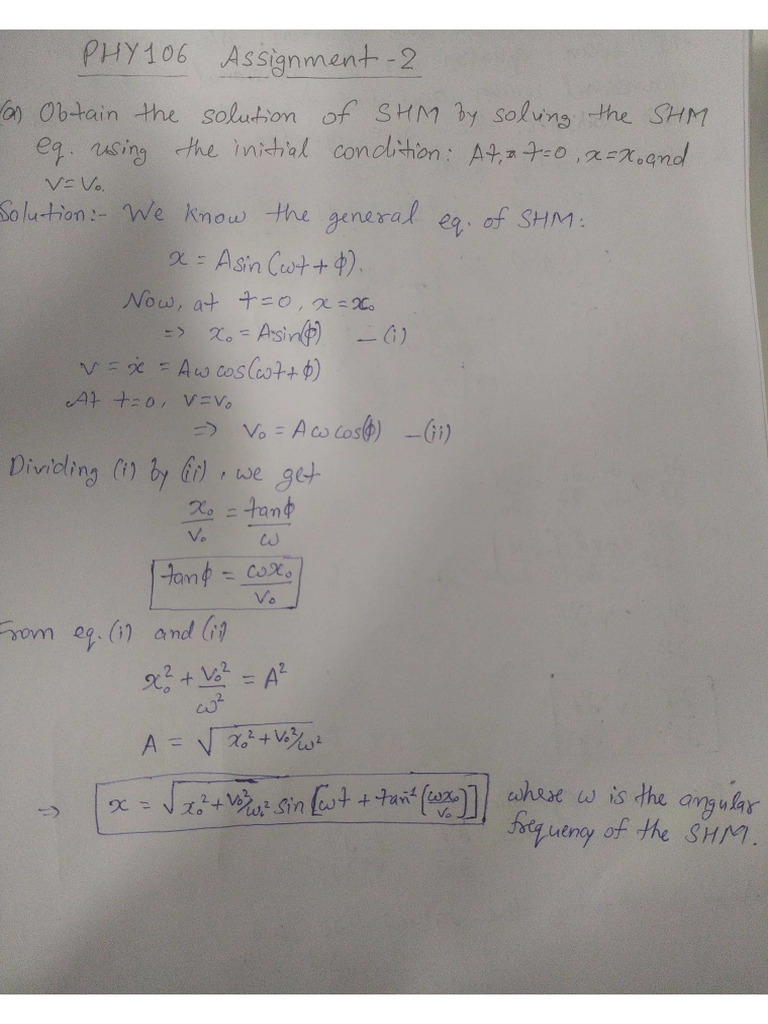 PHY106 Assignment -2
(a) Obtain the solution of SHM by solving the SHM
eq. using the initial condition: At, t=0, x=x₀ and
v=v₀.
Solution:- We know the general eq. of SHM:
x = A sin(ωt + ϕ).
Now, at t=0, x=x₀
=> x₀ = A sin(ϕ) —(i)
v = ẋ = Aω cos(ωt+ϕ)
At t=0, v=v₀
=> v₀ = Aω cos(ϕ) —(ii)
Dividing (i) by (ii), we get
x₀/v₀ = tanϕ/ω
tanϕ = ωx₀/v₀
From eq. (i) and (ii)
x₀² + v₀²/ω² = A²
A = √(x₀² + v₀²/ω²)
=> x = √(x₀² + v₀²/ω₀²) sin[ωt + tan⁻¹(ωx₀/v₀)] where ω is the angular
frequency of the SHM.